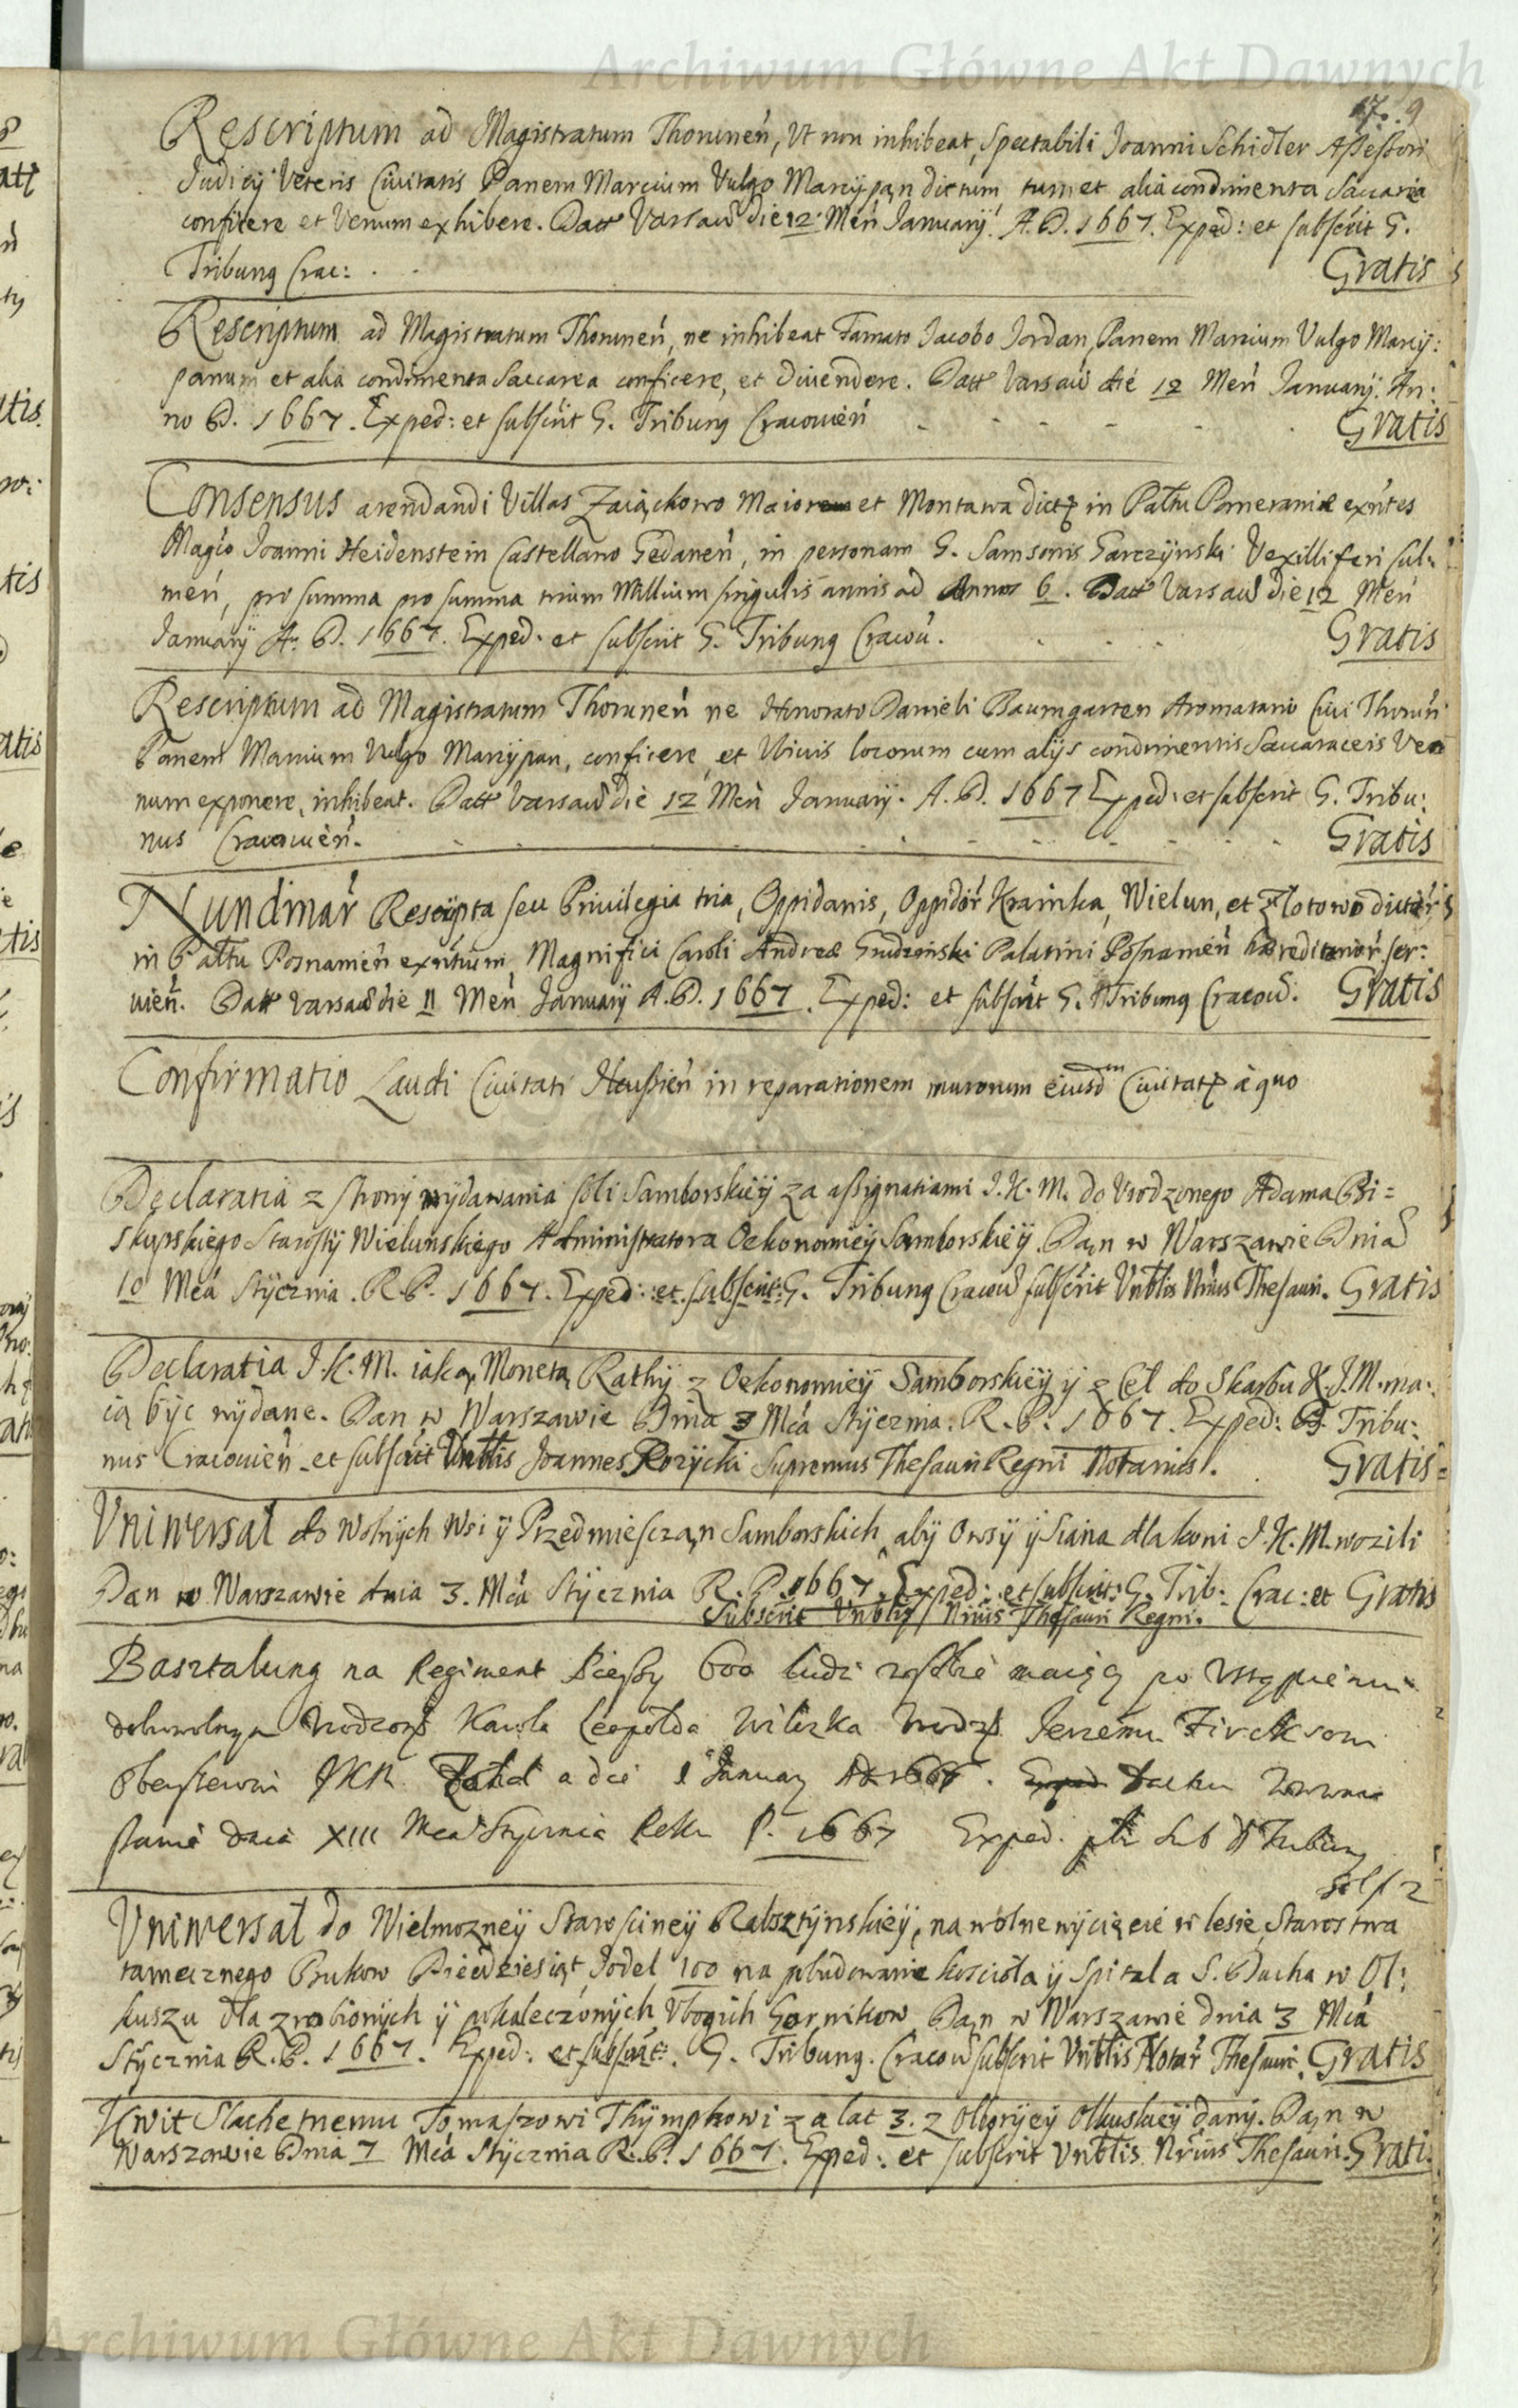 Archiwum Główne Akt Dawnych
17. 9
Rescriptum ad Magistratum Thorunen̄, Ut non inhibeat, Spectabili Joanni Schidler Assessori
Judicij Veteris Civitatis Panem Marcium Vulgo Marcypan dictum tum et alia condimenta Saccarea
conficere et Venum exhibere. Datt Varsav die 12 Men̄ Januarij. A. D. 1667. Exped: et subscrit G.
Tribung Crac: . . Gratis
Rescriptum ad Magistratum Thorunen̄, ne inhibeat Famato Jacobo Jordan, Panem Marcium Vulgo Marcy:
panum et alia condimenta Saccarea conficere, et divendere. Datt Varsav die 12 Men̄ Januarij. An:
no D. 1667. Exped: et subscrit G. Tribung Cracovien̄ Gratis
Consensus arendandi Villas Zaiąckowo Maiorem et Montawa dictę in Pałtu Pomeraniæ exn̄tes
Magco Joanni Heidenstein Castellano Gedanen̄, in personam G. Samsonis Garczynski Vexilliferi Cul:
men̄, pro summa pro summa trium Millium singulis annis ad Annos 6. Datt Varsav die 12 Men̄
Januarij A. D. 1667. Exped: et subscrit G. Tribung Cracov. Gratis
Rescriptum ad Magistratum Thorunen̄ ne Honorato Danieli Baumgarten Aromatario Civi Thorun̄
Panem Marcium Vulgo Marcypan, conficere, et Ubivis locorum cum alijs condimentis Saccaraceis Ve
num exponere, inhibeat. Datt Varsav die 12 Men̄ Januarij. A. D. 1667 Exped: et subscrit G. Tribu:
nus Cracovien̄. Gratis
Nundinar̄ Rescripta seu Privilegia tria, Oppidanis, Oppidor̄ Krainka, Wielun, et Zlotowo dictor̄
in Pałtu Posnanien̄ exn̄tium, Magnifici Caroli Andreæ Grudzinski Palatini Posnanien̄ hæreditarior̄ ser:
vien̄. Datt Varsav die 11 Men̄ Januarij A. D. 1667. Exped: et subscrit G. Tribung Cracov. Gratis
Confirmatio Laudi Civitati in reparationem murorum eiusdm Civitatę a quo
Declaratia z strony wydawania soli Samborskiey za assignatiami J. K. M. do Urodzonego Adama Bi=
skupskiego Starosty Wielunskiego Administratora Oekonomiey Samborskiey. Dan w Warszawie Dnia
10 Mca Stycznia. R. P. 1667. Exped: et subscrit: G. Tribung Cracov subscrit Urntlis Nrius Thesaur. Gratis
Declaratia J. K. M. iaką Monetą Rathy z Oekonomiey Samborskiey y z Cel do Skarbu K. J. M. ma:
ią byc wydane. Dan w Warszawie Dnia 3 Mca Stycznia. R. P. 1667. Exped: G. Tribu:
nus Cracovien̄ et subscrit Urntlis Joannes Rozycki Supremus Thesauri Regni Notarius. Gratis
Uniwersal do Wolnych Wsi y Przedmiesczan Samborskich, aby Owsy y Siana dla koni J. K. M. wozili
Dan w Warszawie dnia 3. Mca Stycznia R. P. 1667. Exped: et subscrit: G. Trib: Crac: et Gratis
Subscrit Urntlis Nrius Thesauri Regni.
Basztalung na Regiment Pieszy 600 ludzi w sobie maiący po Ustąpieniu
dobrowolnym Karola Leopolda Wilczka Jerzemu Firckxowi
Obersterowi JKM a die 1 January 1667. Exped
dnia XIII Mca Stycznia Roku P. 1667 Exped. Sub G Tribung
Uniwersal do Wielmozney Staroscincy Rabsztynskiey, na wolne wycięcie w lesie Starostwa
tamecznego Bukow Piecdziesiąt Jodel 100 na pobudowanie kosciola y Spitala S. Ducha w Ol:
kuszu dla zrobionych y pokaleczonych Ubogich Gornikow Dan w Warszawie dnia 3 Mca
Stycznia R. P. 1667. Exped: et subscrit: G. Tribung. Cracov subscrit Urntlis Notar̄ Thesaur. Gratis
Kwit Slachetnemu Tomaszowi Thympkowi za lat 3. z Olboryey Olkuskiey dany. Dan w
Warszawie Dnia 7 Mca Stycznia R. P. 1667. Exped: et subscrit Urntlis Nrius Thesaur. Gratis
Archiwum Główne Akt Dawnych